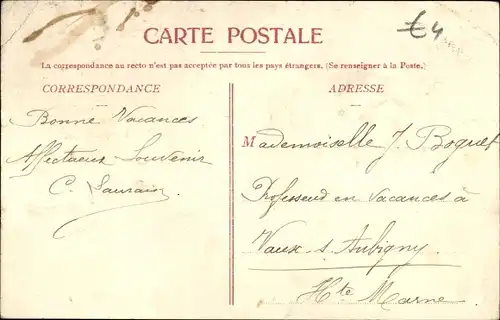 CARTE POSTALE
€4
La correspondance au recto n'est pas acceptée par tous les pays étrangers. (Se renseigner à la Poste.)
CORRESPONDANCE
Bonne Vacances
Affectueux Souvenir
C. Saurain
ADRESSE
Mademoiselle J. Boquet
Professeur en vacances à
Vaux s. Aubigny
Hte Marne